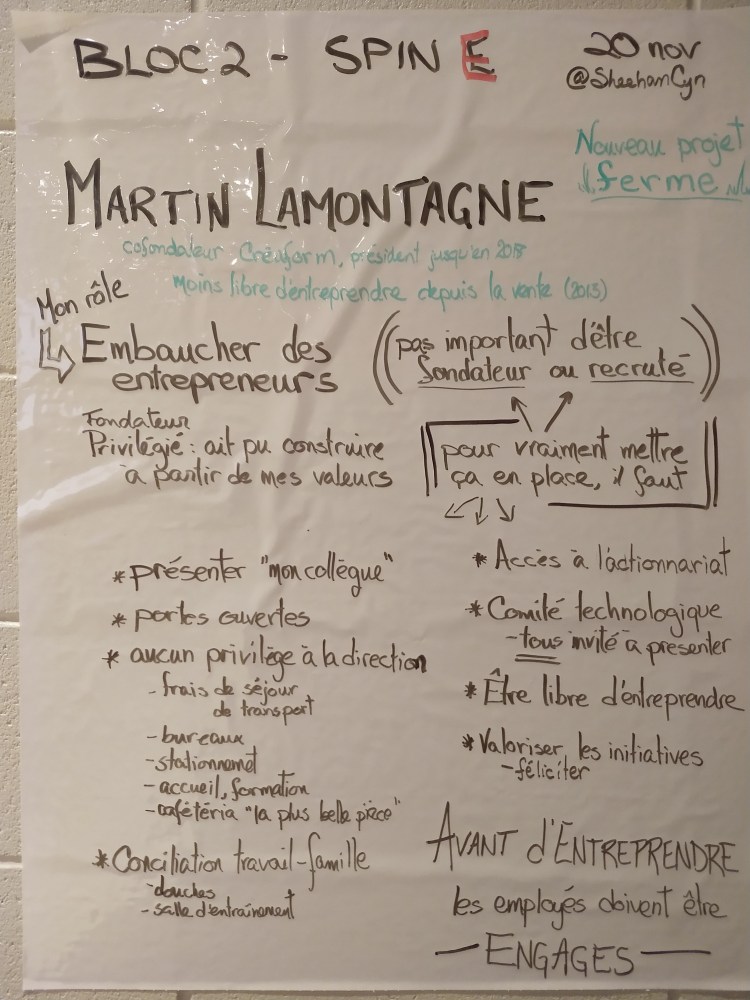 BLOC 2 - SPIN E
20 nov
@SheehanCyn
Nouveau projet
ferme
MARTIN LAMONTAGNE
cofondateur Créaform, président jusqu'en 2018
Moins libre d'entreprendre depuis la vente (2013)
Mon rôle
Embaucher des
entrepreneurs
(pas important d'être
fondateur ou recruté)
Fondateur
Privilégié : ait pu construire
à partir de mes valeurs
pour vraiment mettre
ça en place, il faut
* présenter "mon collègue"
* portes ouvertes
* aucun privilège à la direction
- frais de séjour
de transport
- bureaux
- stationnemet
- accueil, formation
- cafétéria "la plus belle pièce"
* Conciliation travail-famille
- douches
- salle d'entraînement
* Accès à l'actionnariat
* Comité technologique
- tous invité à présenter
* Être libre d'entreprendre
* Valoriser les initiatives
- féliciter
AVANT d'ENTREPRENDRE
les employés doivent être
— ENGAGES —